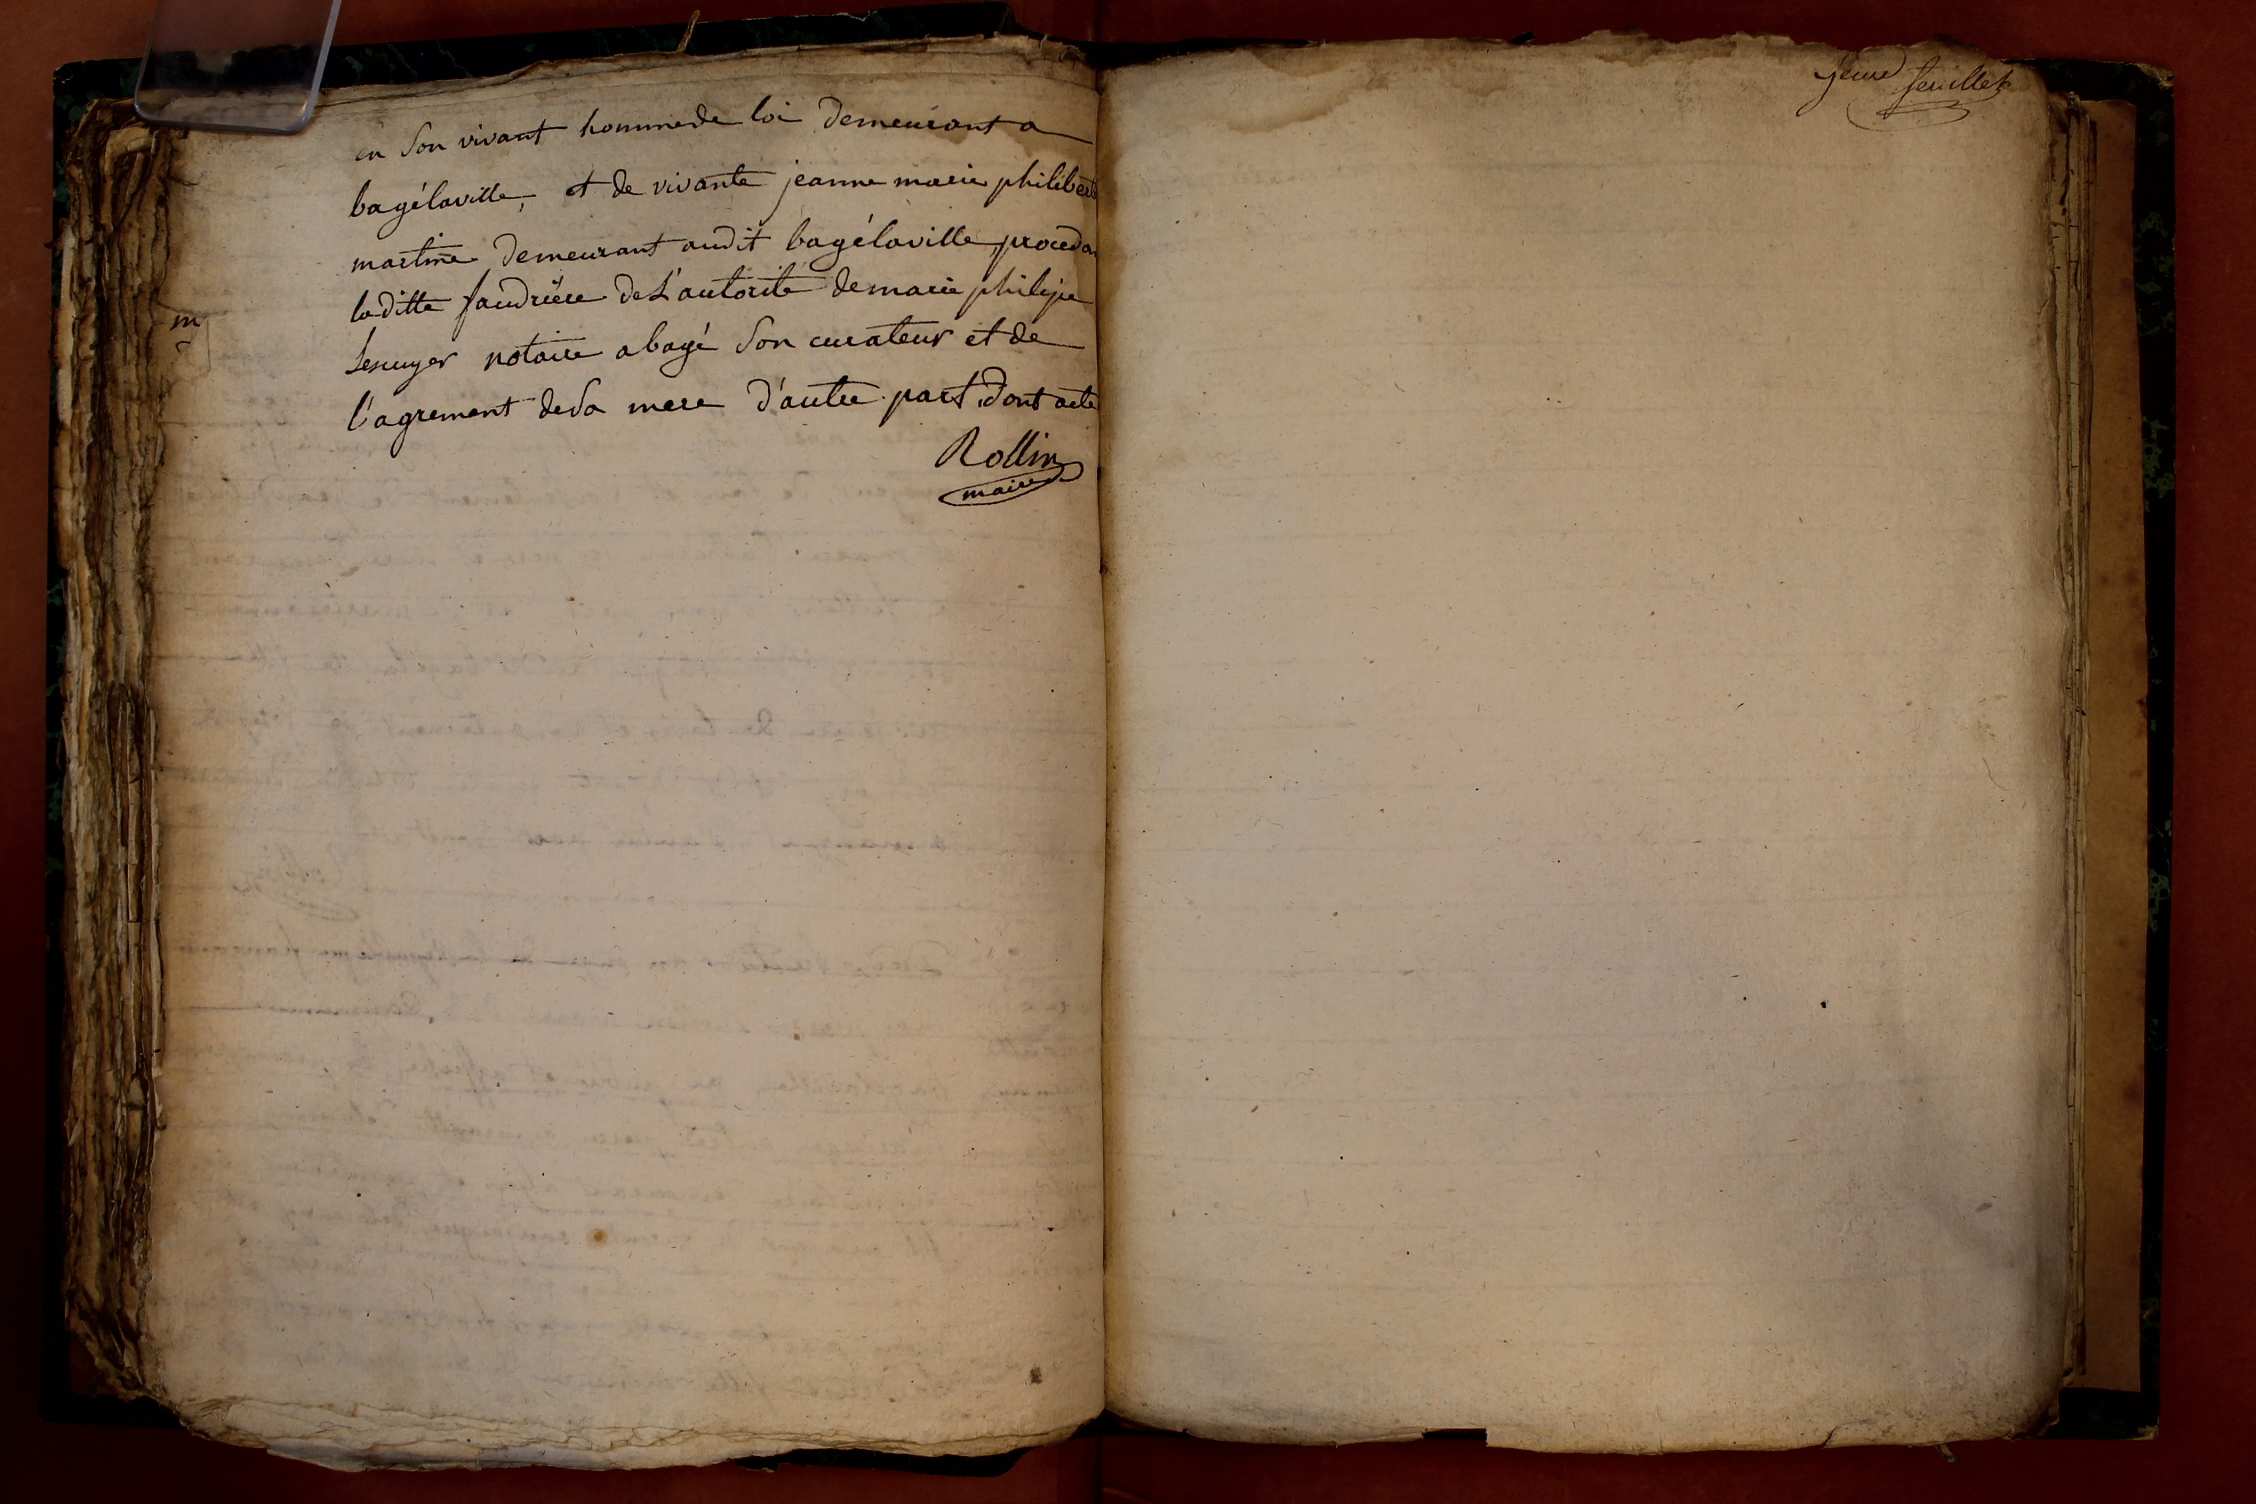 en son vivant homme de loi demeurant a
bagélaville, et de vivante jeanne marie philiberte
martine demeurant audit bagélaville, procedan
laditte faudrière de L'autorité de marie philipe
Lescuyer notaire a bagé son curateur et de
l'agrement de sa mere d'autre part, dont acte
Rollin
maire
m
feuillet